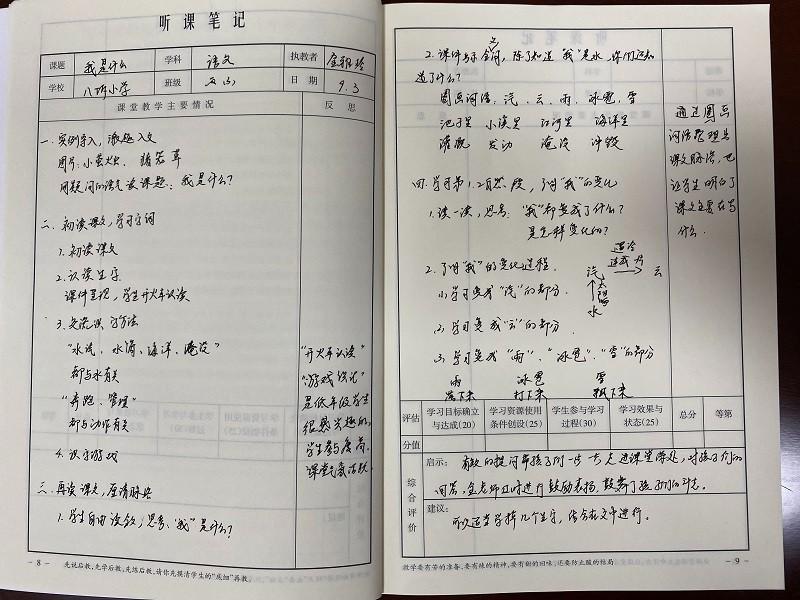 听课笔记
课题 我是什么 学科 语文 执教者
学校 八坼小学 班级 日期 9.3
课堂教学主要情况 反思
一. 实例导入, 激趣入文
图片: 小萤火虫、
用疑问的语气读课题: 我是什么?
二. 初读课文, 学习字词
1. 初读课文
2. 认读生字
课件呈现, 学生开火车认读
3. 交流识字方法
"水汽、水滴、海洋、淹没"
都与水有关
"奔跑、管理"
都与动作有关
4. 识字游戏
三. 再读课文, 厘清脉络
1. 学生自由读课文, 思考, "我"是什么?
"开火车认读"
"游戏识记"
是低年级学生
很感兴趣的,
学生参与度高,
课堂气氛活跃.
- 8 - 先说后教,先学后教,先练后教,请你先摸清学生的"底细"再教。
2. 课件出示全文, 除了知道"我"是水, 你们还知
道了什么?
圈画词语: 汽、云、雨、冰雹、雪
池子里 小溪里 江河里 海洋里
灌溉 发动 淹没 冲毁
四. 学习第1.2自然段, 了解"我"的变化
1. 读一读, 思考: "我"都变成了什么?
是怎样变化的?
2. 了解"我"的变化过程.
(1) 学习变成"汽"的部分.
(2) 学习变成"云"的部分.
(3) 学习变成"雨"、"冰雹"、"雪"的部分
汽 → 云
遇冷
↑ 太阳
水
雨 冰雹 雪
落下来 打下来 飘下来
通过圈画
词语整理出
课文脉络, 也
让学生明白了
课文主要在写
什么.
评估 学习目标确立与达成(20) 学习资源使用条件创设(25) 学生参与学习过程(30) 学习效果与状态(25) 总分 等第
分值
综合评价
启示: 有效的提问带孩子们一步一步走进课堂深处, 对孩子们的
回答, 金老师及时进行鼓励表扬, 鼓舞了孩子们的斗志.
建议: 可以适当学掉几个生字, 结合在文中进行.
教学要有劳的准备,要有辣的精神,要有甜的回味,还要防止酸的结局 - 9 -